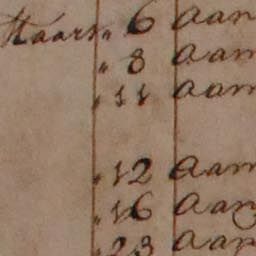 Maart " 6 Aan
" 8 Aan
" 11 Aan
" 12 Aan
" 16 Aan
" 23 Aan